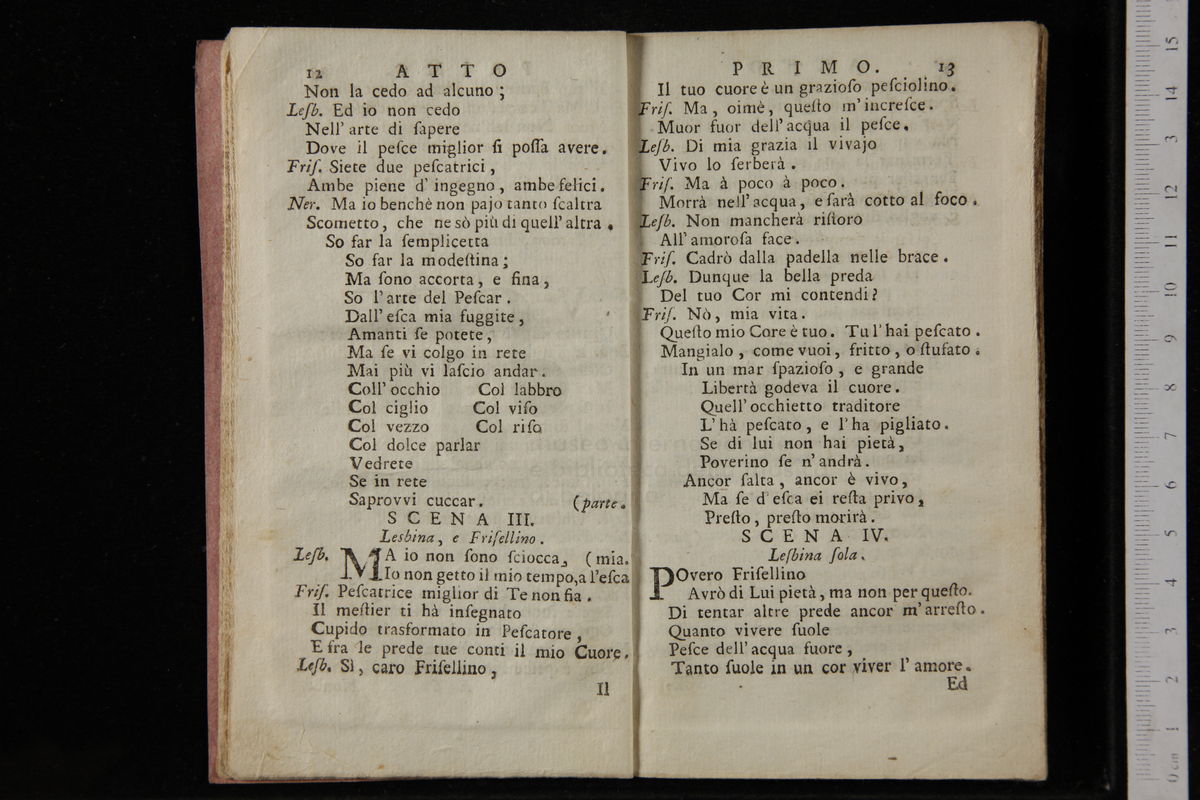 12 ATTO
Non la cedo ad alcuno;
Leſb. Ed io non cedo
Nell' arte di ſapere
Dove il peſce miglior ſi poſſa avere.
Friſ. Siete due peſcatrici,
Ambe piene d' ingegno, ambe felici.
Ner. Ma io benchè non pajo tanto ſcaltra
Scometto, che ne sò più di quell' altra.
So far la ſemplicetta
So far la modeſtina;
Ma ſono accorta, e fina,
So l'arte del Peſcar.
Dall' eſca mia fuggite,
Amanti ſe potete,
Ma ſe vi colgo in rete
Mai più vi laſcio andar.
Coll' occhio Col labbro
Col ciglio Col viſo
Col vezzo Col riſo
Col dolce parlar
Vedrete
Se in rete
Saprovvi cuccar. (parte.
SCENA III.
Lesbina, e Friſellino.
Leſb. MA io non ſono ſciocca, (mia.
Io non getto il mio tempo, a l'eſca
Friſ. Peſcatrice miglior di Te non fia.
Il meſtier ti hà inſegnato
Cupido trasformato in Peſcatore,
E fra le prede tue conti il mio Cuore.
Leſb. Sì, caro Friſellino,
Il
PRIMO. 13
Il tuo cuore è un grazioſo peſciolino.
Friſ. Ma, oimè, queſto m' increſce.
Muor fuor dell' acqua il peſce.
Leſb. Di mia grazia il vivajo
Vivo lo ſerberà.
Friſ. Ma à poco à poco.
Morrà nell' acqua, e ſarà cotto al foco.
Leſb. Non mancherà riſtoro
All' amoroſa face.
Friſ. Cadrò dalla padella nelle brace.
Leſb. Dunque la bella preda
Del tuo Cor mi contendi?
Friſ. Nò, mia vita.
Queſto mio Core è tuo. Tu l' hai peſcato.
Mangialo, come vuoi, fritto, o ſtufato.
In un mar ſpazioſo, e grande
Libertà godeva il cuore.
Quell' occhietto traditore
L' hà peſcato, e l' ha pigliato.
Se di lui non hai pietà,
Poverino ſe n' andrà.
Ancor ſalta, ancor è vivo,
Ma ſe d' eſca ei reſta privo,
Preſto, preſto morirà.
SCENA IV.
Leſbina ſola.
POvero Friſellino
Avrò di Lui pietà, ma non per queſto.
Di tentar altre prede ancor m' arreſto.
Quanto vivere ſuole
Peſce dell' acqua fuore,
Tanto ſuole in un cor viver l' amore.
Ed
0 cm 1 2 3 4 5 6 7 8 9 10 11 12 13 14 15